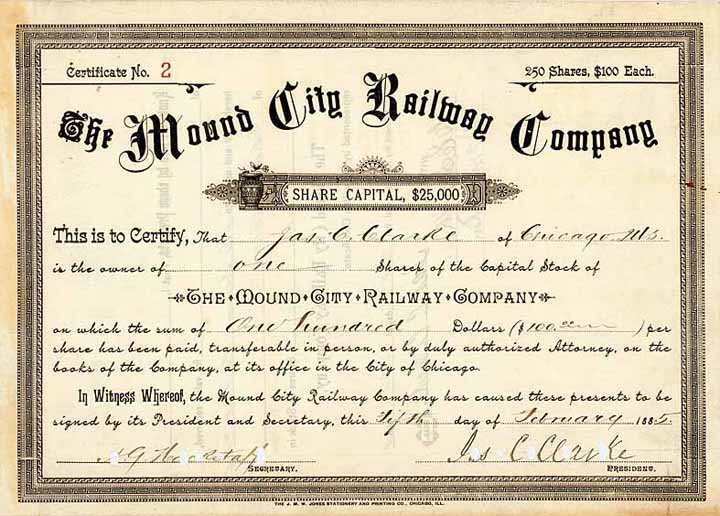 Certificate No. 2
250 Shares, $100 Each.
The Mound City Railway Company
SHARE CAPITAL, $25,000
This is to Certify, That Jas. C. Clarke of Chicago, Ills.
is the owner of one Shares of the Capital Stock of
THE MOUND CITY RAILWAY COMPANY
on which the sum of One hundred Dollars ($100.00) per
share has been paid, transferable in person, or by duly authorized Attorney, on the
books of the Company, at its office in the City of Chicago.
In Witness Whereof, the Mound City Railway Company has caused these presents to be
signed by its President and Secretary, this Fifth day of February 1885
Jas C. Clarke
SECRETARY. PRESIDENT.
THE J. M. W. JONES STATIONERY AND PRINTING CO., CHICAGO, ILL.